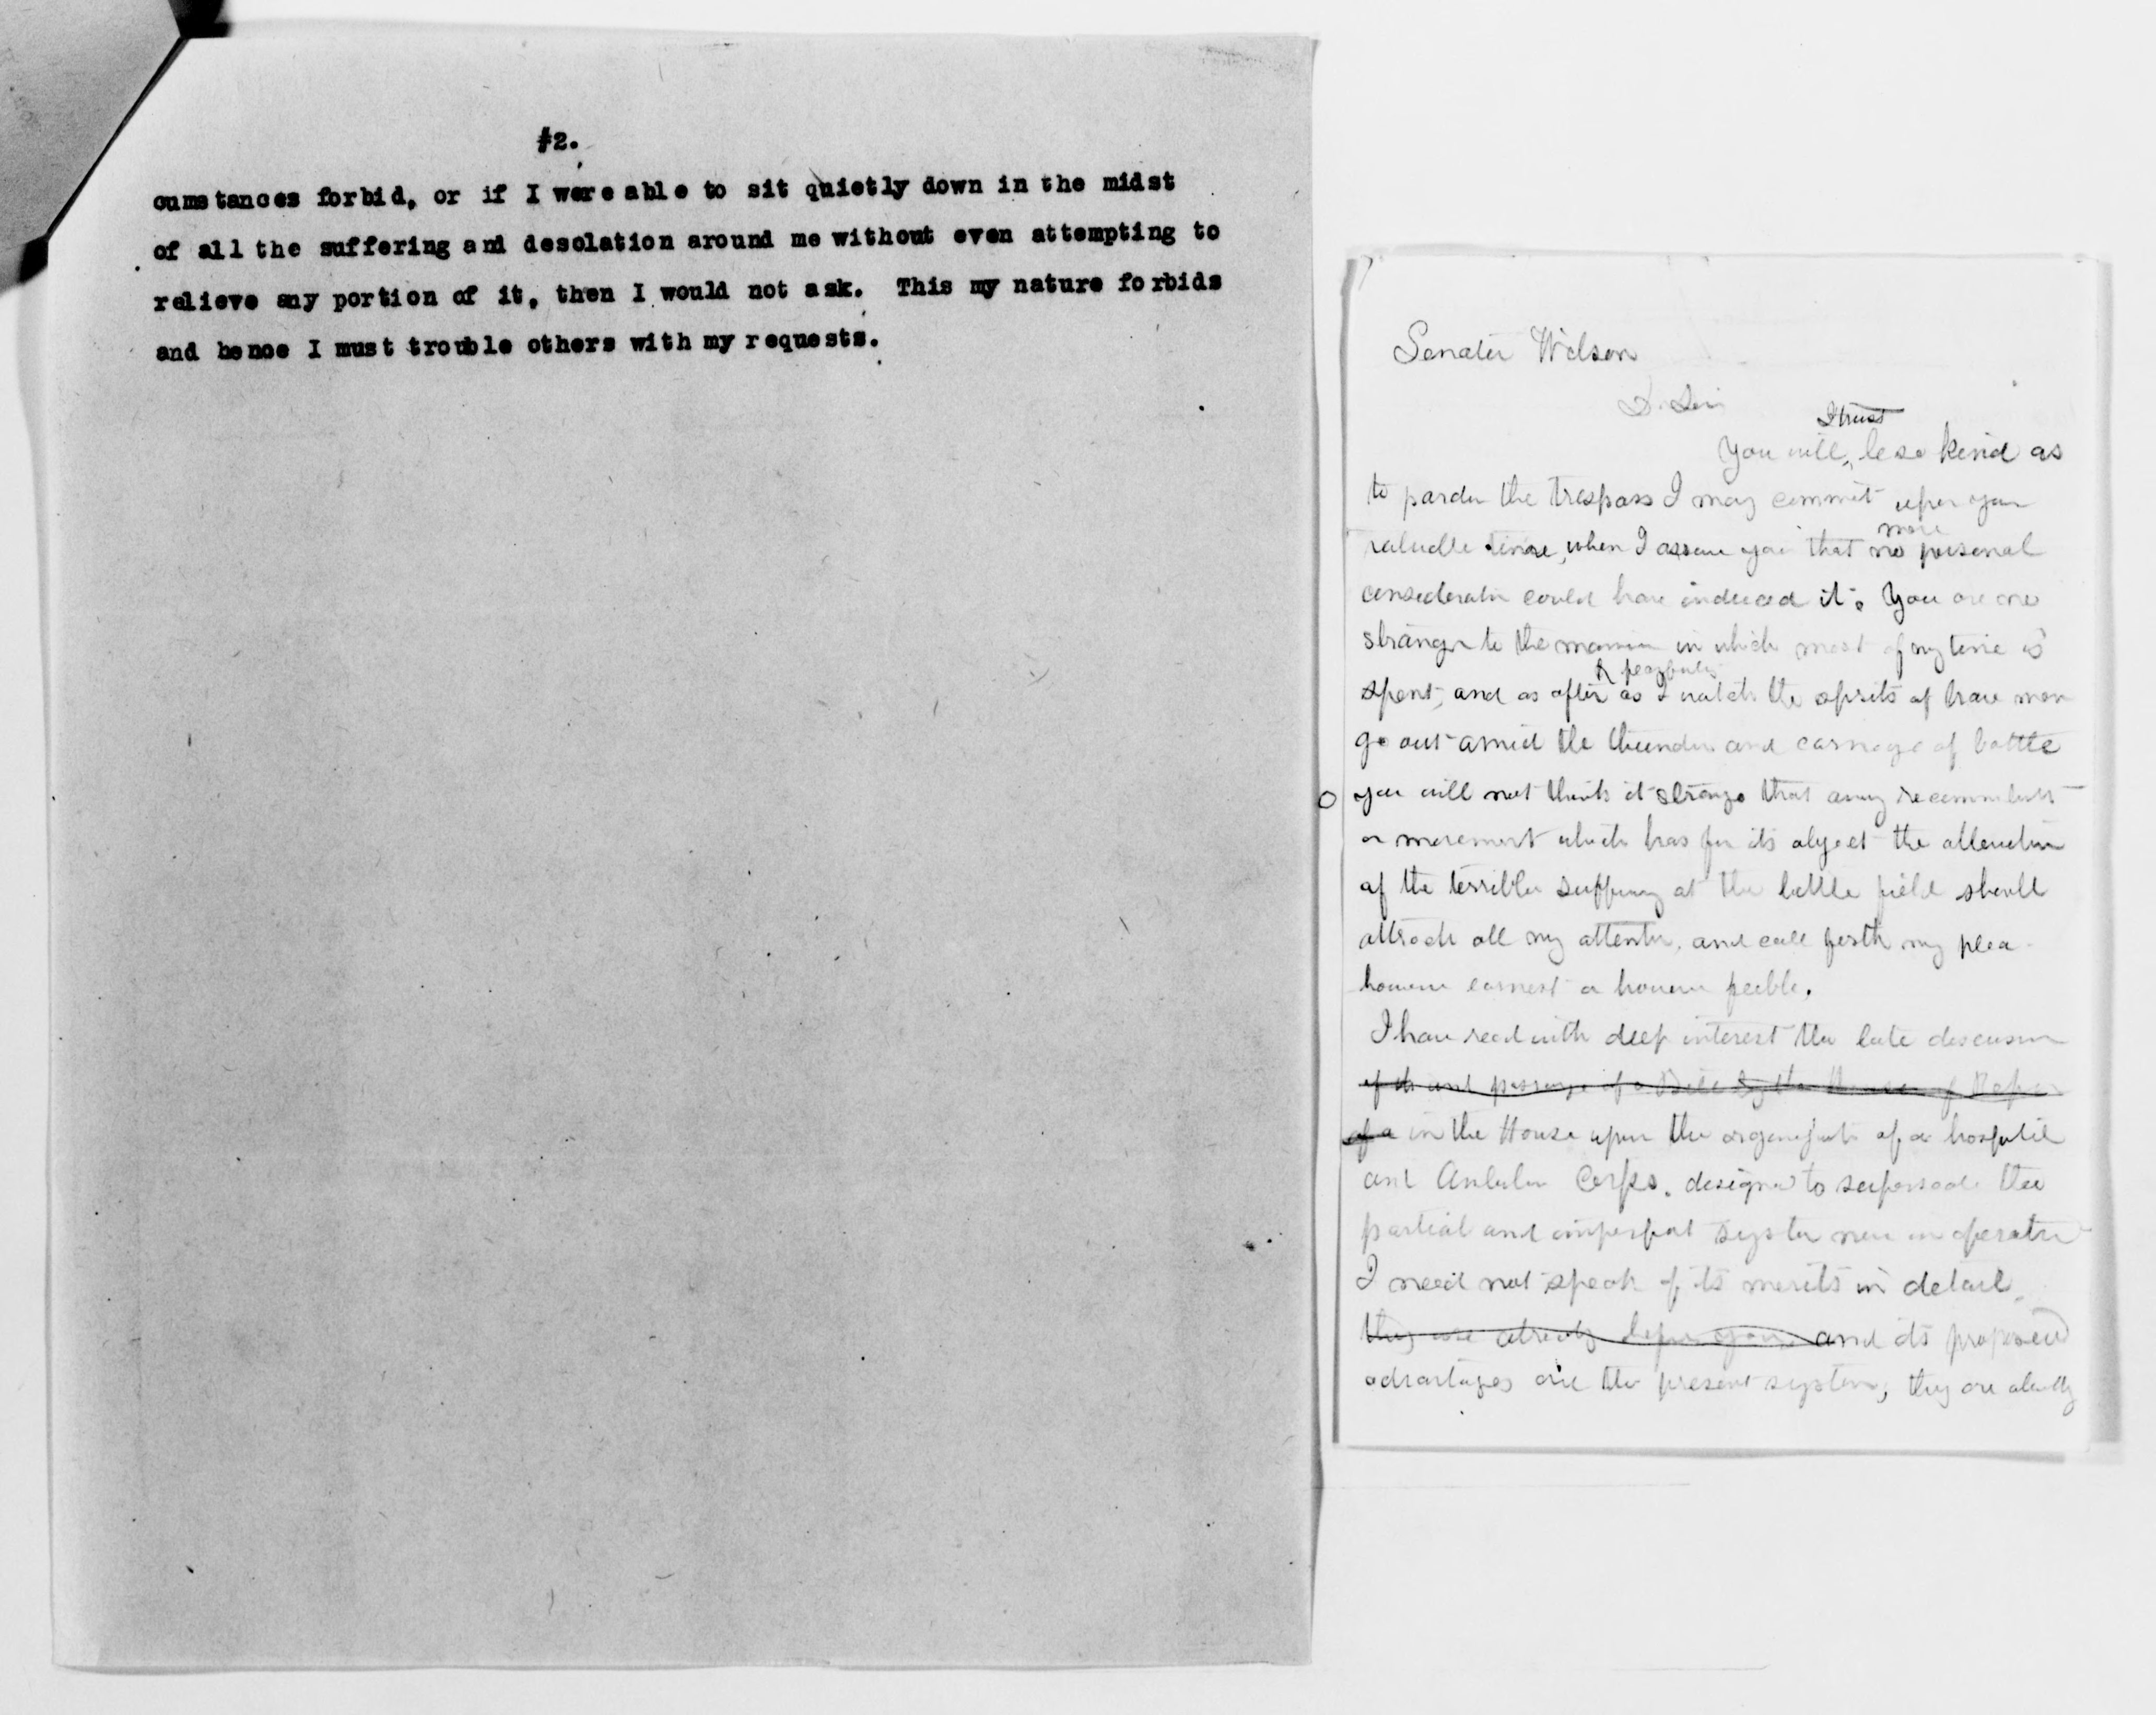 #2.
cumstances forbid, or if I were able to sit quietly down in the midst
of all the suffering and desolation around me without even attempting to
relieve any portion of it, then I would not ask. This my nature forbids
and hence I must trouble others with my requests.
Senator Wilson
D. Sir
I trust
You will, be so kind as
to pardon the trespass I may commit upon your
more
valuable time, when I assure you that no personal
consideration could have induced it. You are no
stranger to the manner in which most of my time is
spent, and as often as I watch the spirits of brave men
go out amid the thunder and carnage of battle
you will not think it strange that any
or movement which has for its object the alleviation
of the terrible suffering at the battle field should
attract all my attention, and call forth my plea
however earnest or however feeble.
I have read with deep interest the late discussion
of the and passage of a Bill by the House of Repr
of a in the House upon the organization of a hospital
and Ambulance Corps. designed to supersede the
partial and imperfect system now in operation
I need not speak of its merits in detail,
they are already before you and its proposed
advantages over the present system, they are already